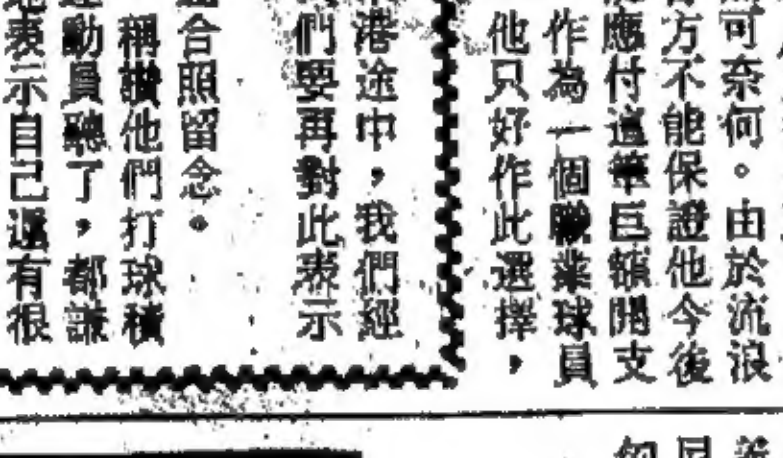 可奈何。由於流浪
方不能保證他今後
應付這筆巨額開支
作為一個職業球員
他只好作此選擇，
港途中，我們經
們要再對此表示
合照留念。
稱讚他們打球積
動員聽了，都謙
表示自己還有很